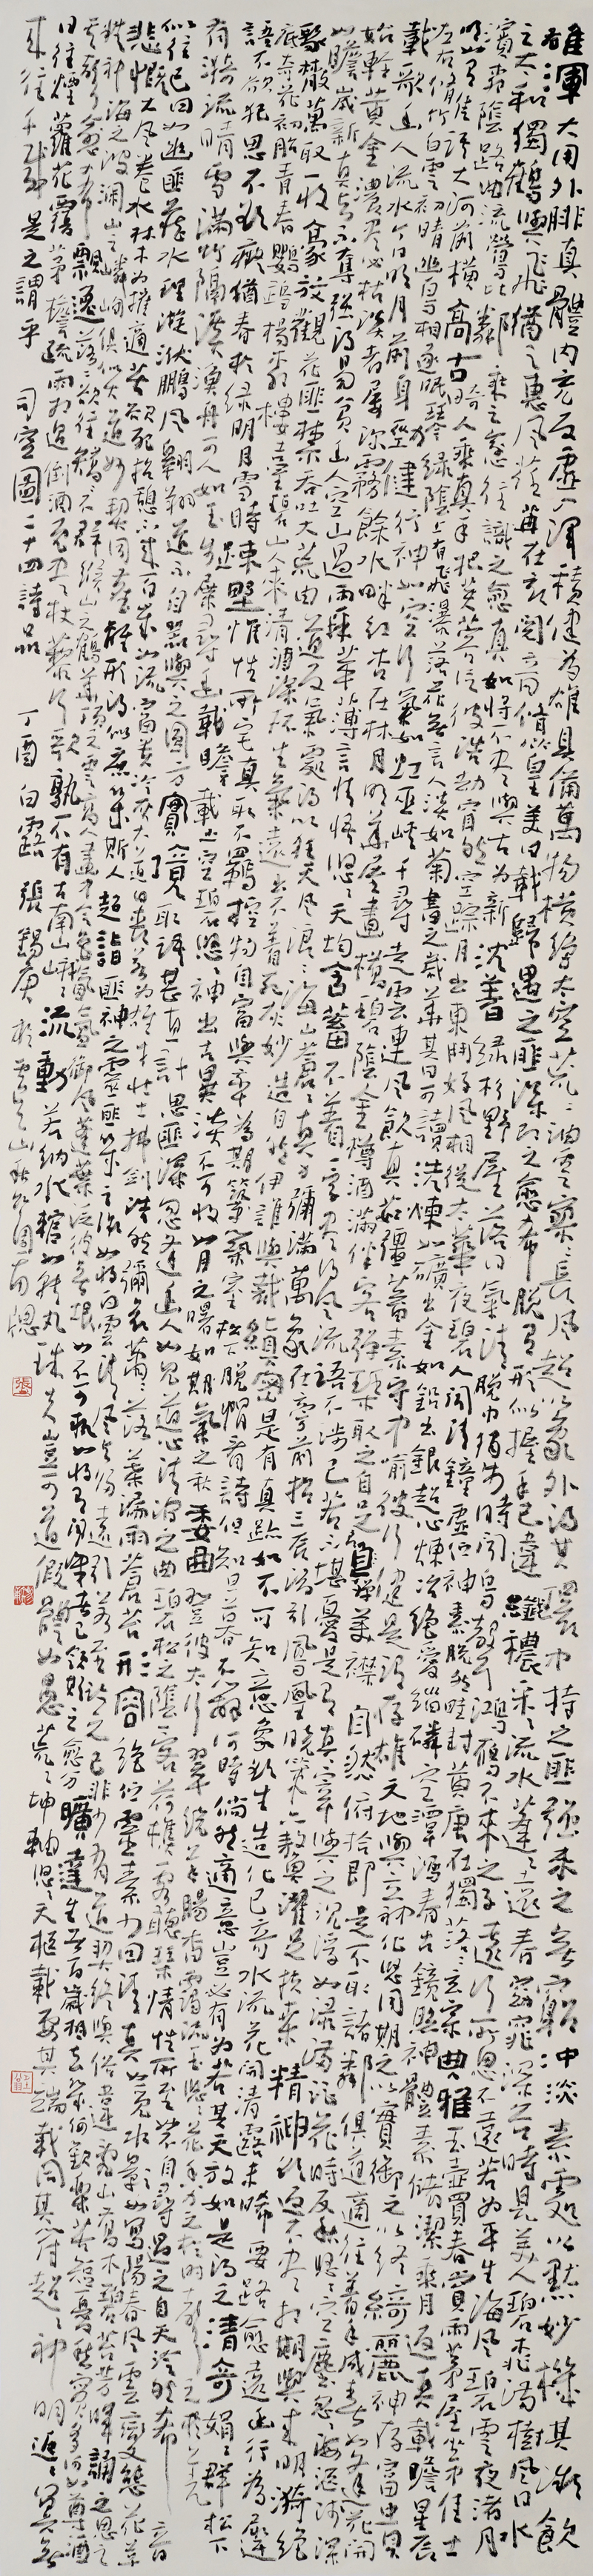 雄渾大用外腓真體內充反虛入渾積健為雄具備萬物橫絕太空荒荒油雲寥寥長風超以象外得其環中持之匪強來之無窮沖淡素處以默妙機其微飲
之太和獨鶴與飛猶之惠風荏苒在衣閱音修篁美曰載歸遇之匪深即之愈希脫有形似握手已違纖穠采采流水蓬蓬遠春窈窕深谷時見美人碧桃滿樹風日水
濱柳陰路曲流鶯比鄰乘之愈往識之愈真如將不盡與古為新沈著綠杉野屋落日氣清脫巾獨步時聞鳥聲鴻雁不來之子遠行所思不遠若為平生海風碧雲夜渚月
明如有佳語大河前橫高古畸人乘真手把芙蓉泛彼浩劫窅然空蹤月出東斗好風相從太華夜碧人聞清鐘虛佇神素脫然畦封黃唐在獨落落玄宗典雅玉壺買春賞雨茅屋坐中佳士
左右修竹白雲初晴幽鳥相逐眠琴綠陰上有飛瀑落花無言人淡如菊書之歲華其曰可讀洗煉如礦出金如鉛出銀超心煉冶絕愛緇磷空潭瀉春古鏡照神體素儲潔乘月返真載瞻星辰
載歌幽人流水今日明月前身勁健行神如空行氣如虹巫峽千尋走雲連風飲真茹強蓄素守中喻彼行健是謂存雄天地與立神化攸同期之以實御之以終綺麗神存富貴
始輕黃金濃盡必枯淡者屢深霧餘水畔紅杏在林月明華屋畫橋碧陰金樽酒滿伴客彈琴取之自足良殫美襟自然俯拾即是不取諸鄰俱道適往著手成春如逢花開
如瞻歲新真與不奪強得易貧幽人空山過雨採蘋薄言情悟悠悠天鈞含蓄不著一字盡得風流語不涉己若不堪憂是有真宰與之沈浮如淥滿酒花時反秋悠悠空塵忽忽海漚淺深
聚散萬取一收豪放觀花匪禁吞吐大荒由道反氣處得以狂天風浪浪海山蒼蒼真力彌滿萬象在旁前招三辰後引鳳凰曉策六鰲濯足扶桑精神欲返不盡相期與來明漪絕
底奇花初胎青春鸚鵡楊柳樓臺碧山人來清酒深杯生氣遠出不著死灰妙造自然伊誰與裁縝密是有真跡如不可知意象欲生造化已奇水流花開清露未晞要路愈遠幽行為遲
語不欲犯思不欲癡猶春於綠明月雪時疏野惟性所宅真取不羈控物自富與率為期築室松下脫帽看詩但知旦暮不辨何時倘然適意豈必有為若其天放如是得之清奇娟娟群松下
有漪流晴雪滿竹隔溪漁舟可人如玉步屧尋幽載瞻載止空碧悠悠神出古異淡不可收如月之曙如氣之秋委曲登彼太行翠繞羊腸杳靄流玉悠悠花香力之於時聲之於羌
似往已回如幽匪藏水理漩洑鵬風翱翔道不自器與之圓方實境取語甚直計思匪深忽逢幽人如見道心清澗之曲碧松之陰一客荷樵一客聽琴情性所至妙不自尋遇之自天泠然希音
悲慨大風卷水林木為摧適苦欲死招憩不來百歲如流富貴冷灰大道日喪若為雄才壯士拂劍浩然彌哀蕭蕭落葉漏雨蒼苔形容絕佇靈素少回清真如覓水影如寫陽春風雲變態花草
精神海之波瀾山之嶙峋俱似大道妙契同塵離形得似庶幾斯人超詣匪神之靈匪機之微如將白雲清風與歸遠引若至臨之已非少有道契終與俗違亂山喬木碧苔芳暉誦之思之
其聲愈希飄逸落落欲往矯矯不群緱山之鶴華頂之雲高人畫中令色氤氳御風蓬葉泛彼無垠如不可執如將有聞識者已領期之愈分曠達生者百歲相去幾何歡樂苦短憂愁實多何如尊酒
日往煙蘿花覆茅檐疏雨相過倒酒既盡杖藜行歌孰不有古南山峨峨流動若納水輨如轉丸珠夫豈可道假體如愚荒荒坤軸悠悠天樞載要其端載同其符超超神明返返冥無
來往千載是之謂乎司空圖二十四詩品丁酉白露張錫庚於